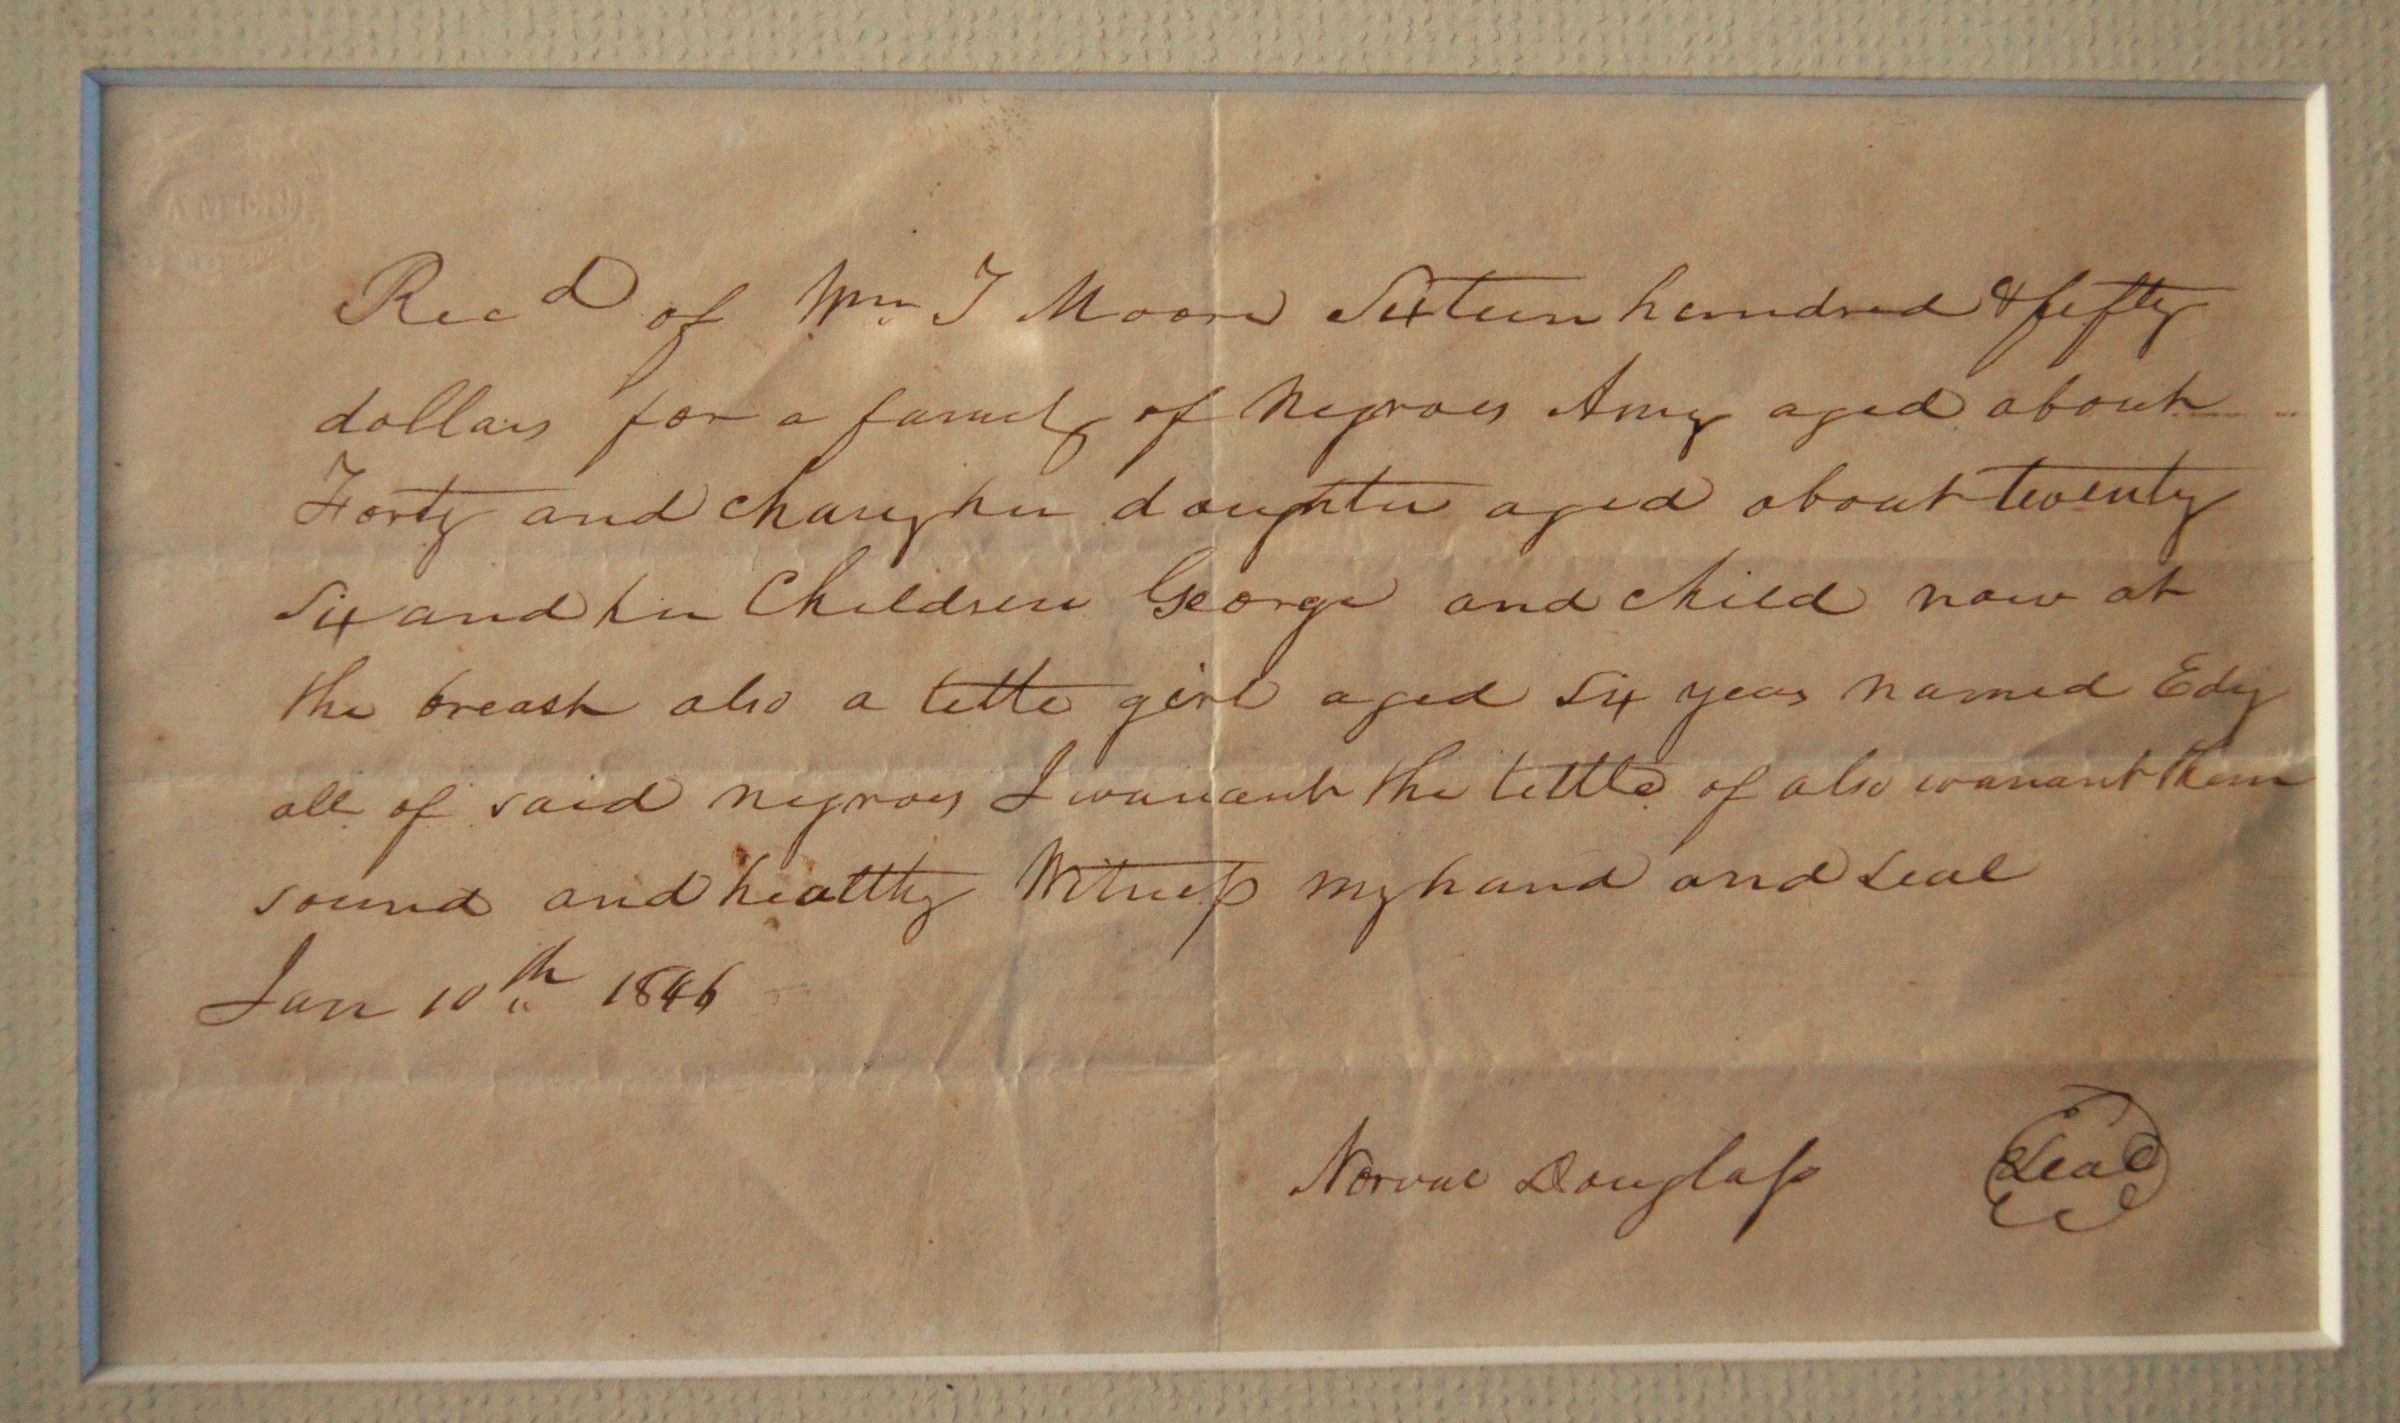 Recd of Wm T Moore Sixteen hundred & fifty
dollars for a family of Negroes Amy aged about
Forty and her doughter aged about twenty
Six and her Children George and child now at
the breast also a little girl aged Six years named Edy
all of said negroes I warrant the tittle of also warrant them
sound and healthy Witness my hand and seal
Jan 10th 1846
Norval Douglass Seal